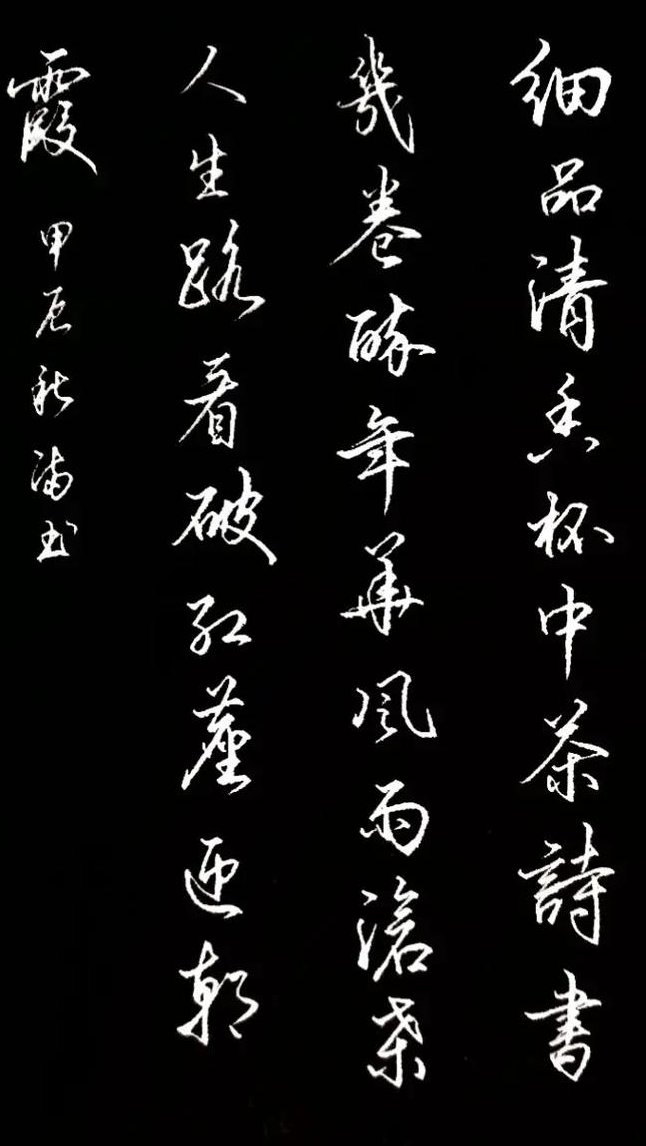 细品清香杯中茶詩書
幾卷醉年華風雨滄桑
人生路看破红塵迎朝
霞 甲辰秋满玉